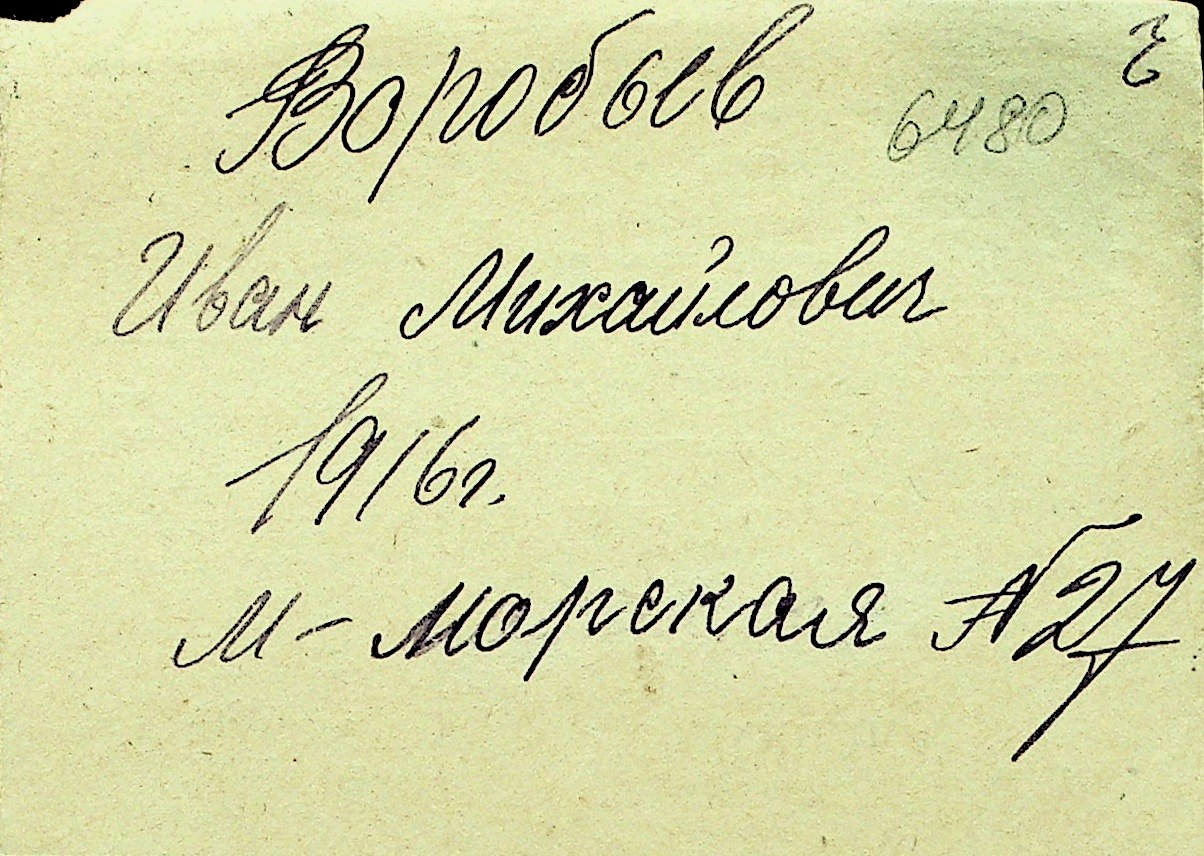 Воробьев 6480
Иван Михайлович
1916г.
м-морская №27